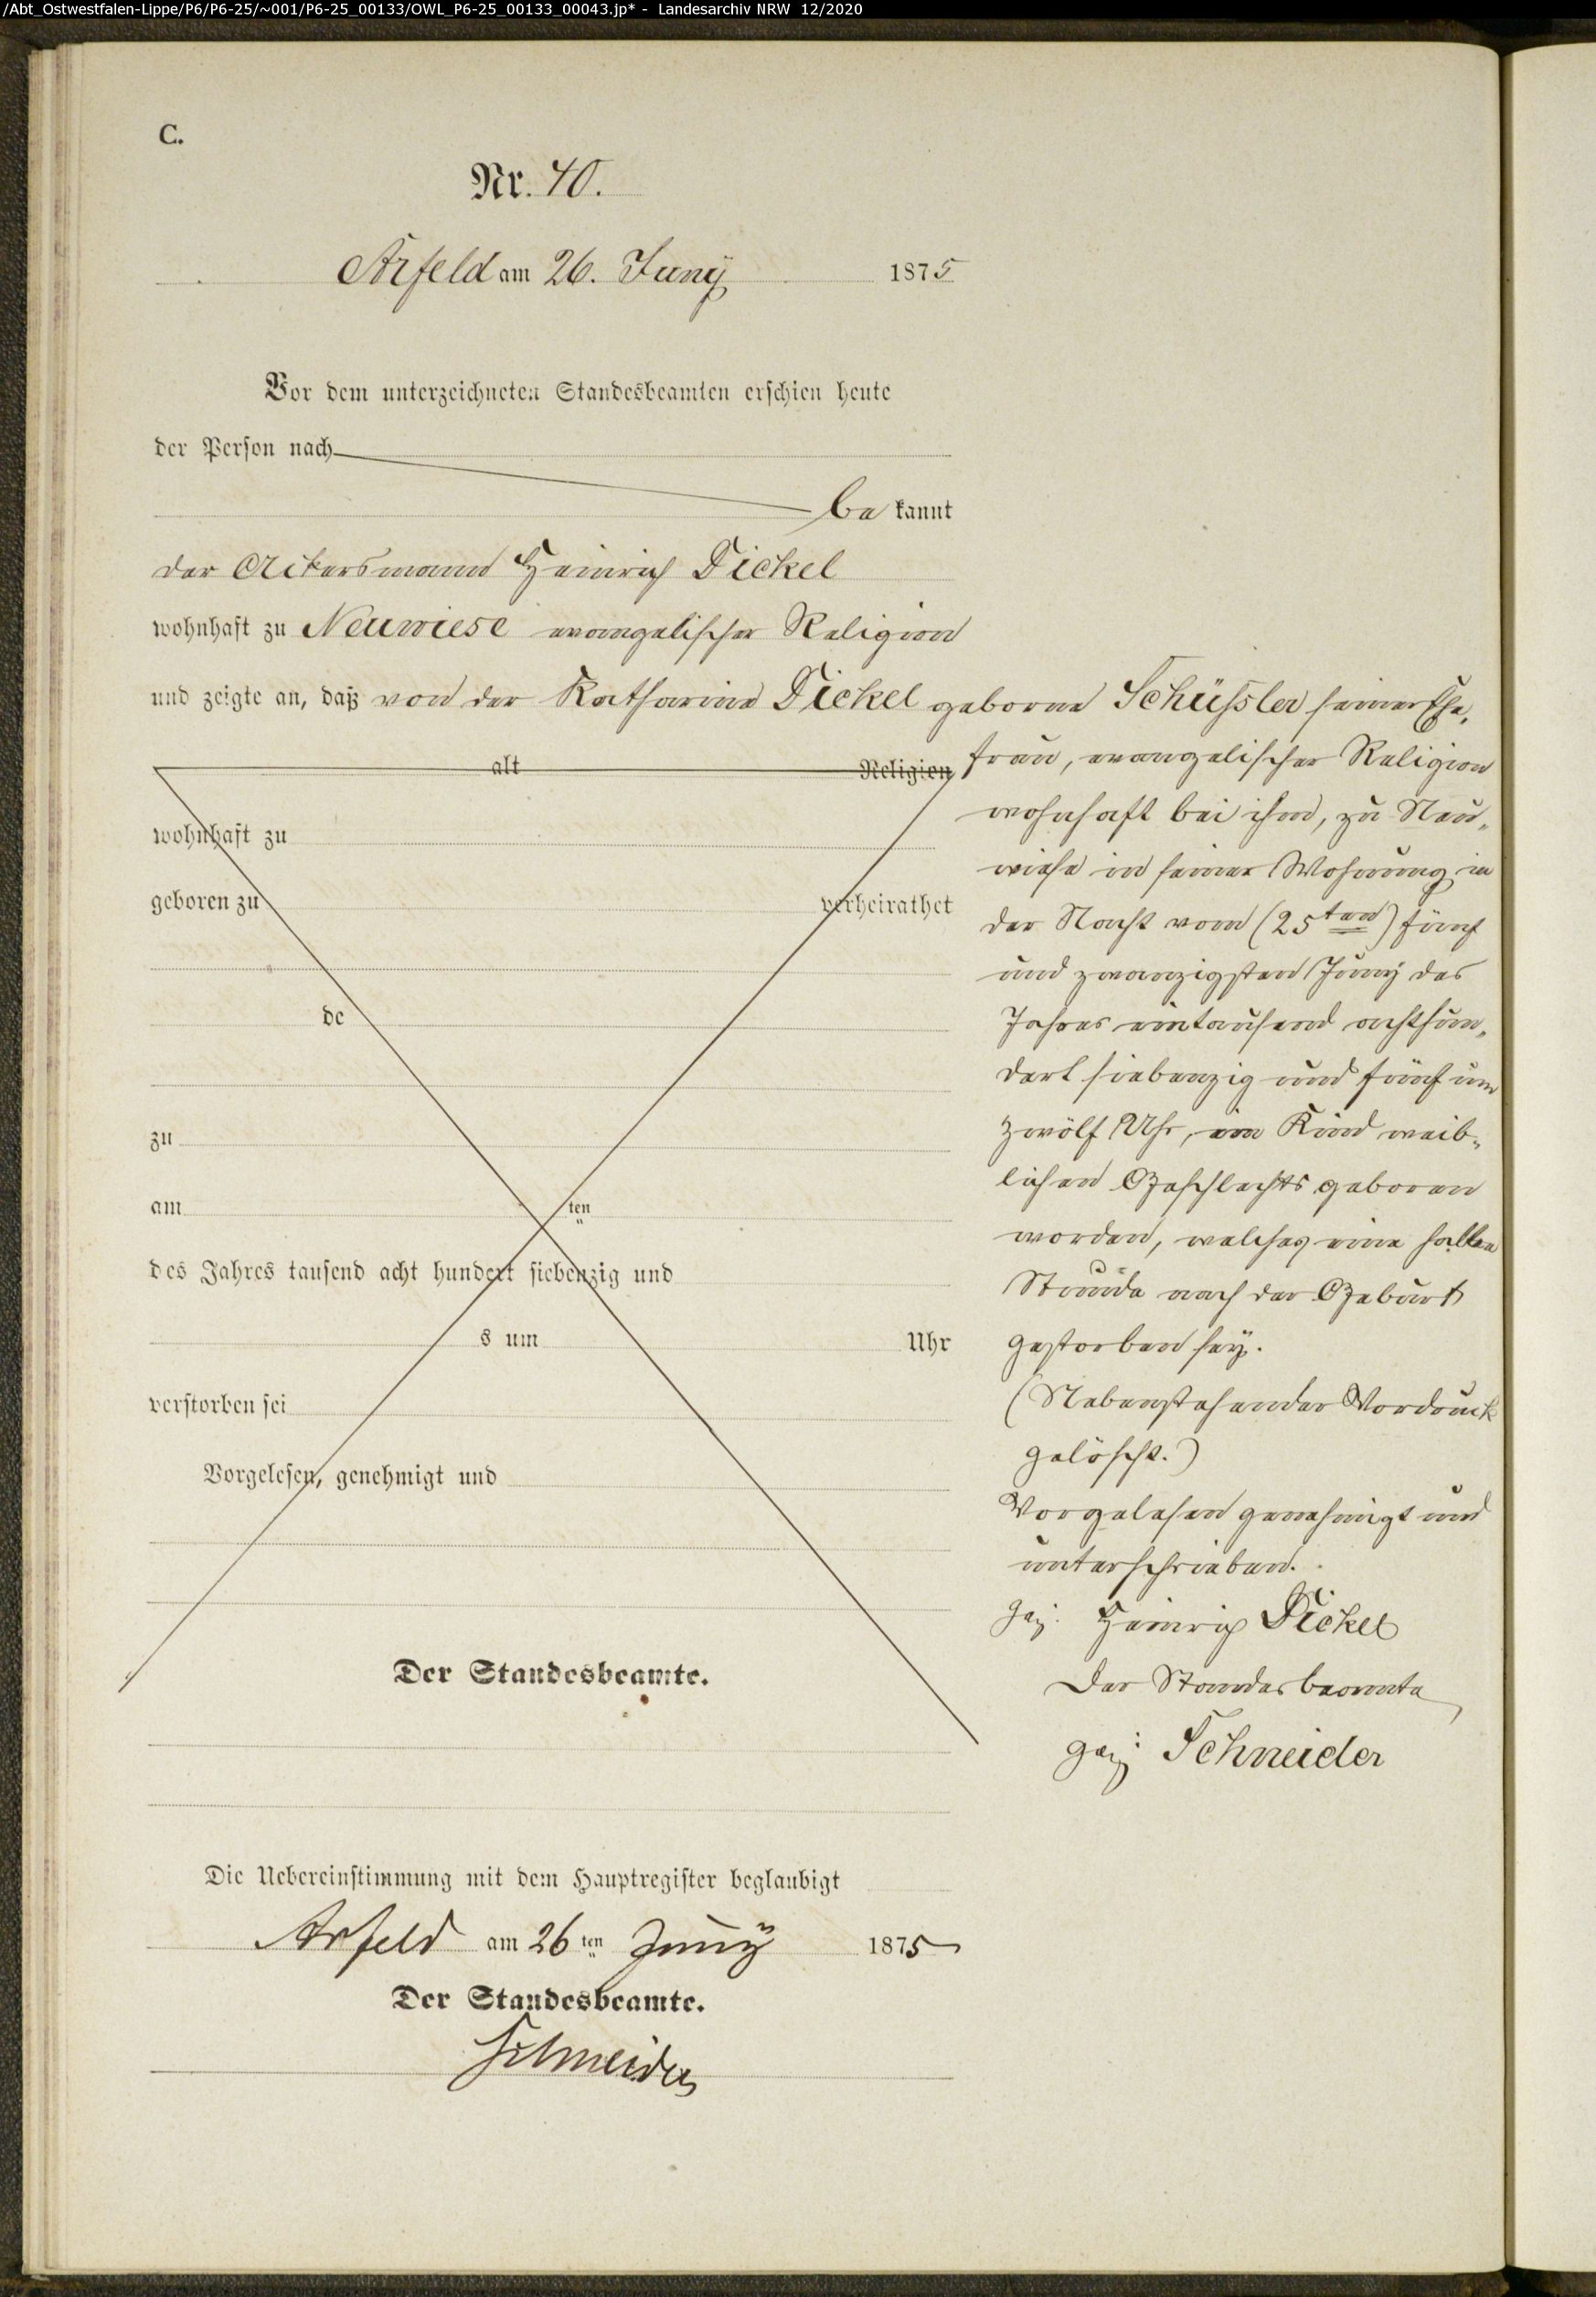 /Abt_Ostwestfalen-Lippe/P6/P6-25/~001/P6-25_00133/OWL_P6-25_00133_00043.jp* - Landesarchiv NRW 12/2020
C.
Nr. 40.
Arfeld am 26. Juny 1875
Vor dem unterzeichneten Standesbeamten erschien heute
der Person nach
be kannt
der Ackersmann Heinrich Dickel
wohnhaft zu Neuwiese evangelischer Religion
und zeigte an, daß von der Katharina Dickel geborne Schüssler seiner Ehe„
alt Religion
frau, evangelischer Religion
wohnhaft bei ihm, zu Neu„
wiese in seiner Wohnung in
der Nacht vom (25ten) fünf
und zwanzigsten Juny des
Jahres eintausend achthun„
dert siebenzig und fünf um
zwölf Uhr, ein Kind weib„
lichen Geschlechts geboren
worden, welches eine halbe
Stunde nach der Geburt
gestorben sey.
(Nebenstehender Vordruck
gelöscht.)
Vorgelesen genehmigt und
unterschrieben.
gez. Heinrich Dickel
Der Standesbeamte
gez: Schneider
wohnhaft zu
geboren zu verheirathet
de
zu
am ten
des Jahres tausend acht hundert siebenzig und
s um Uhr
verstorben sei
Vorgelesen, genehmigt und
Der Standesbeamte.
Die Uebereinstimmung mit dem Hauptregister beglaubigt
Arfeld am 26 ten Juny 1875
Der Standesbeamte.
Schneider